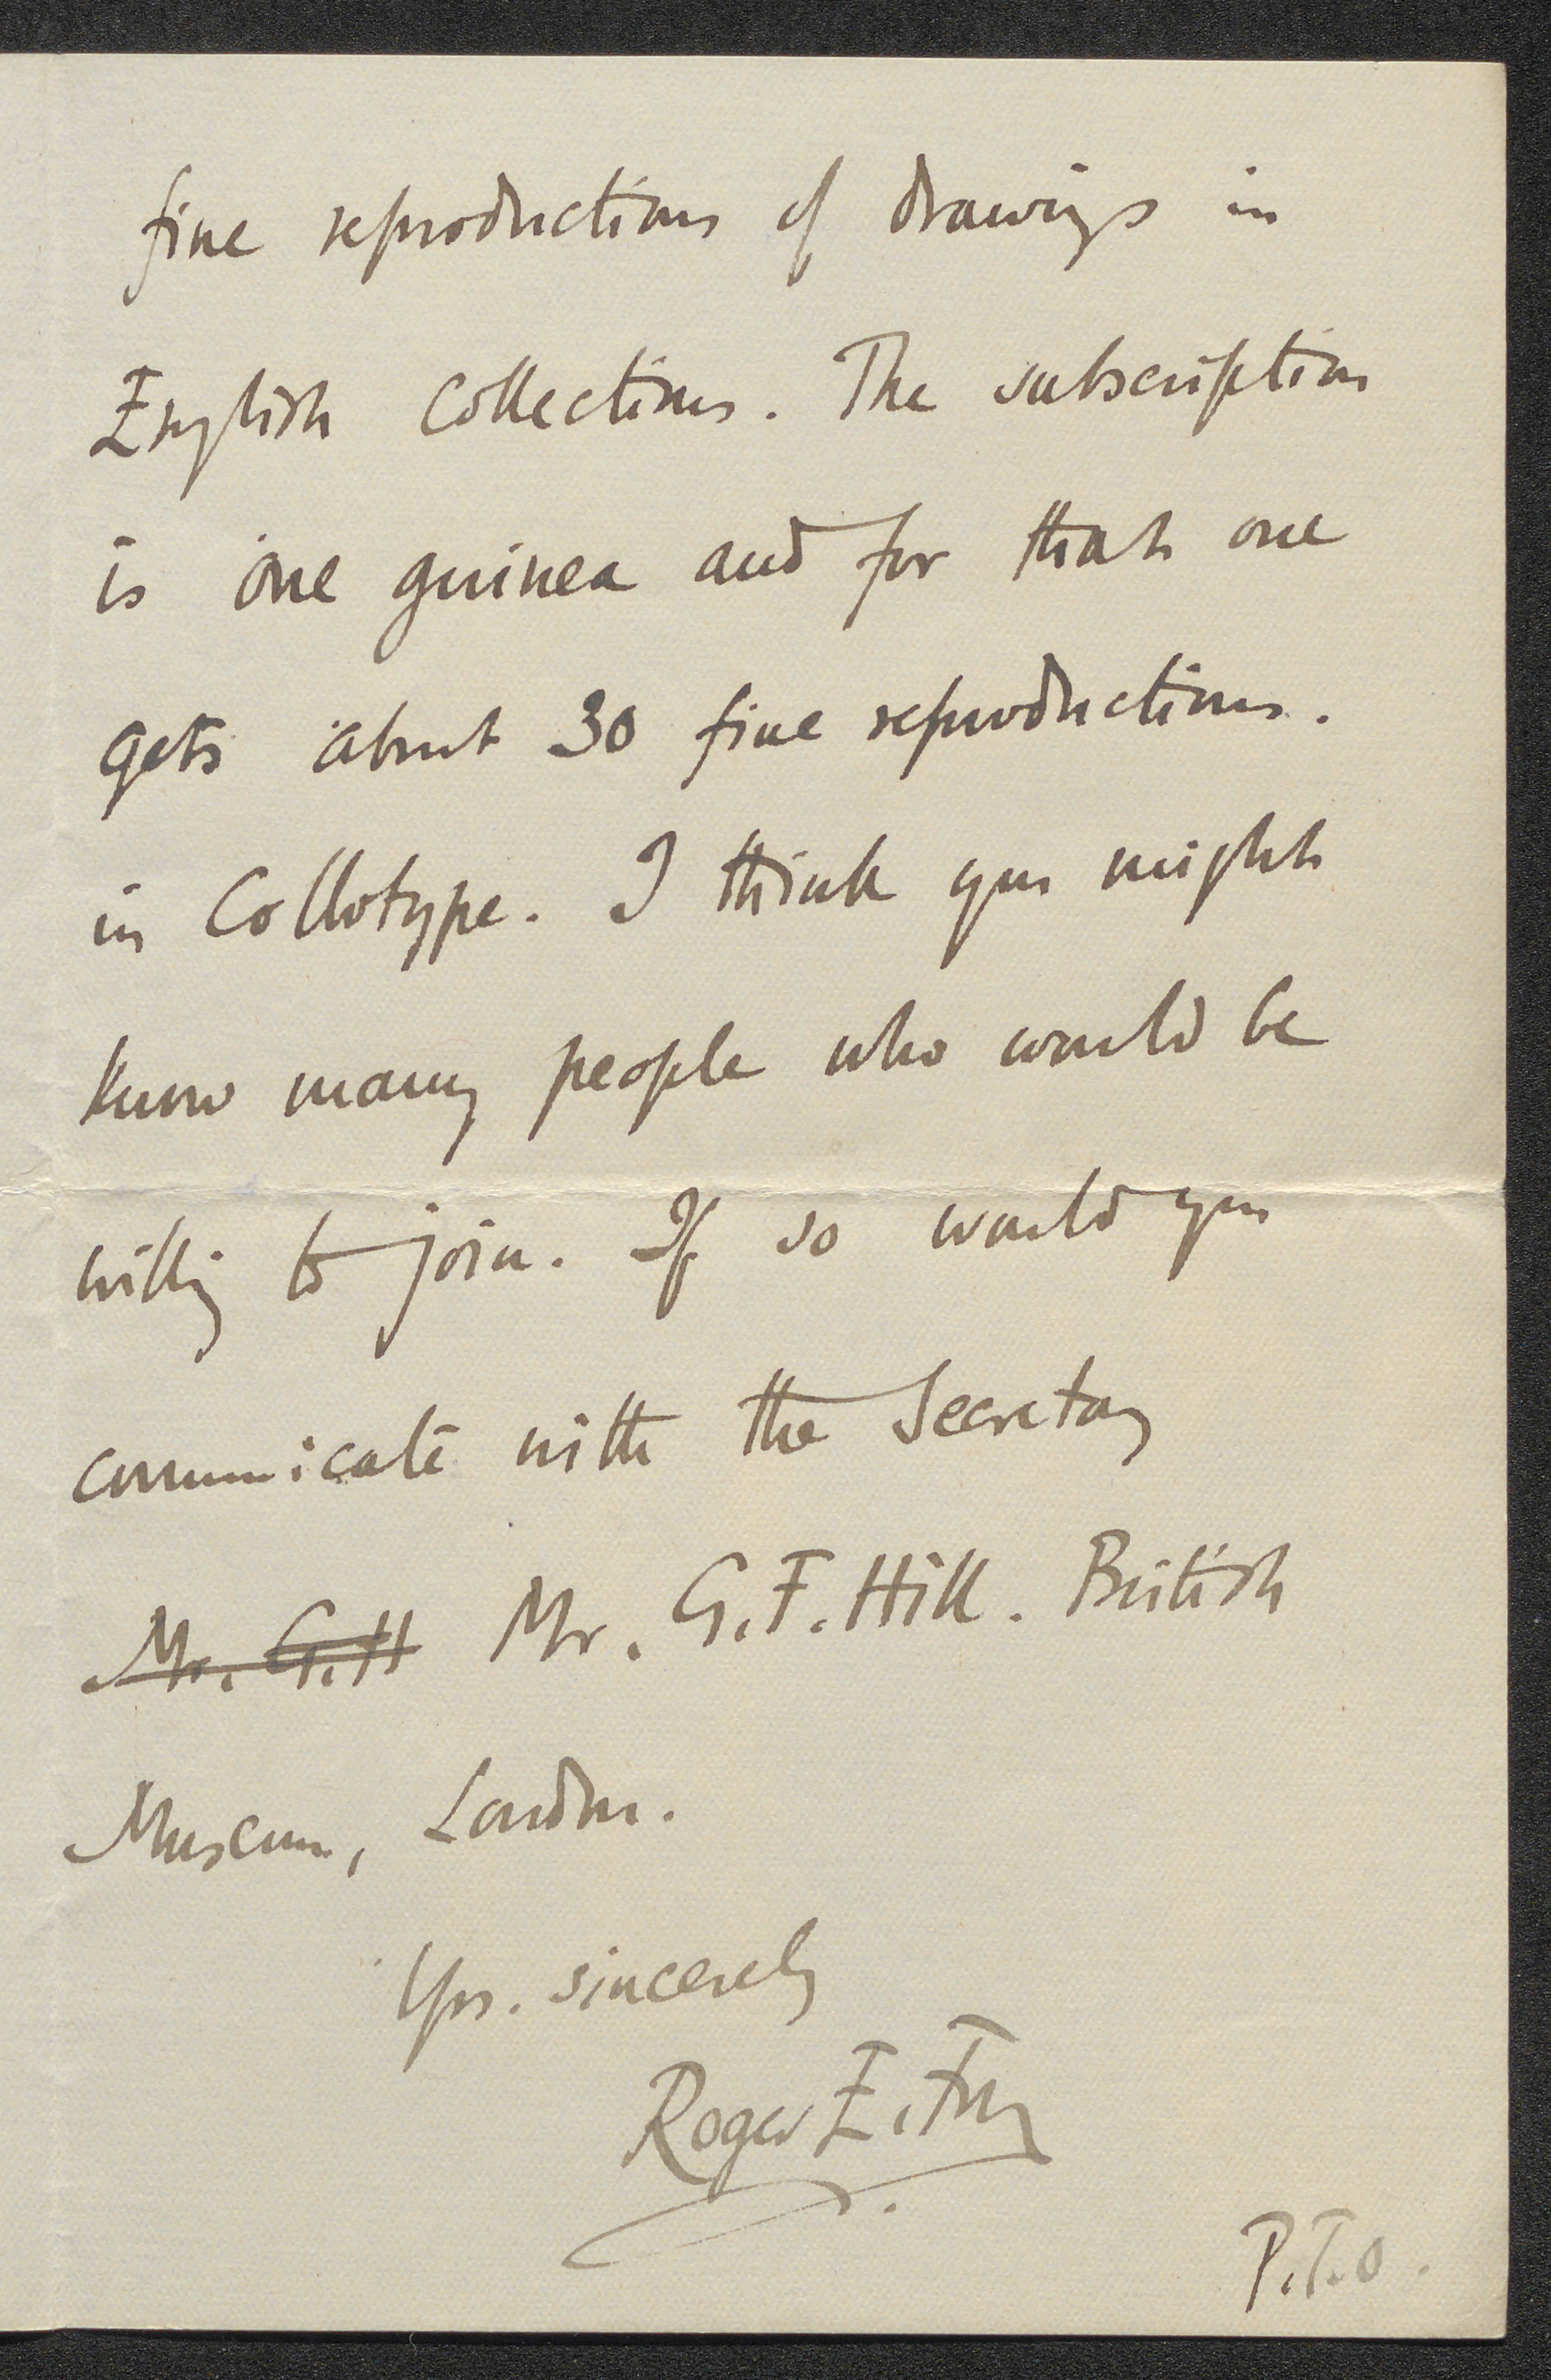 fine reproductions of drawings in
English Collections. The subscription
is one guinea and for that one
gets about 30 fine reproductions.
in Collotype. I think you might
know many people who would be
willing to join. If so would you
communicate with the Secretary
Mr. G.H Mr. G.F. Hill. British
Museum, London.
Yrs. sincerely
Roger E. Fry
P.T.O.